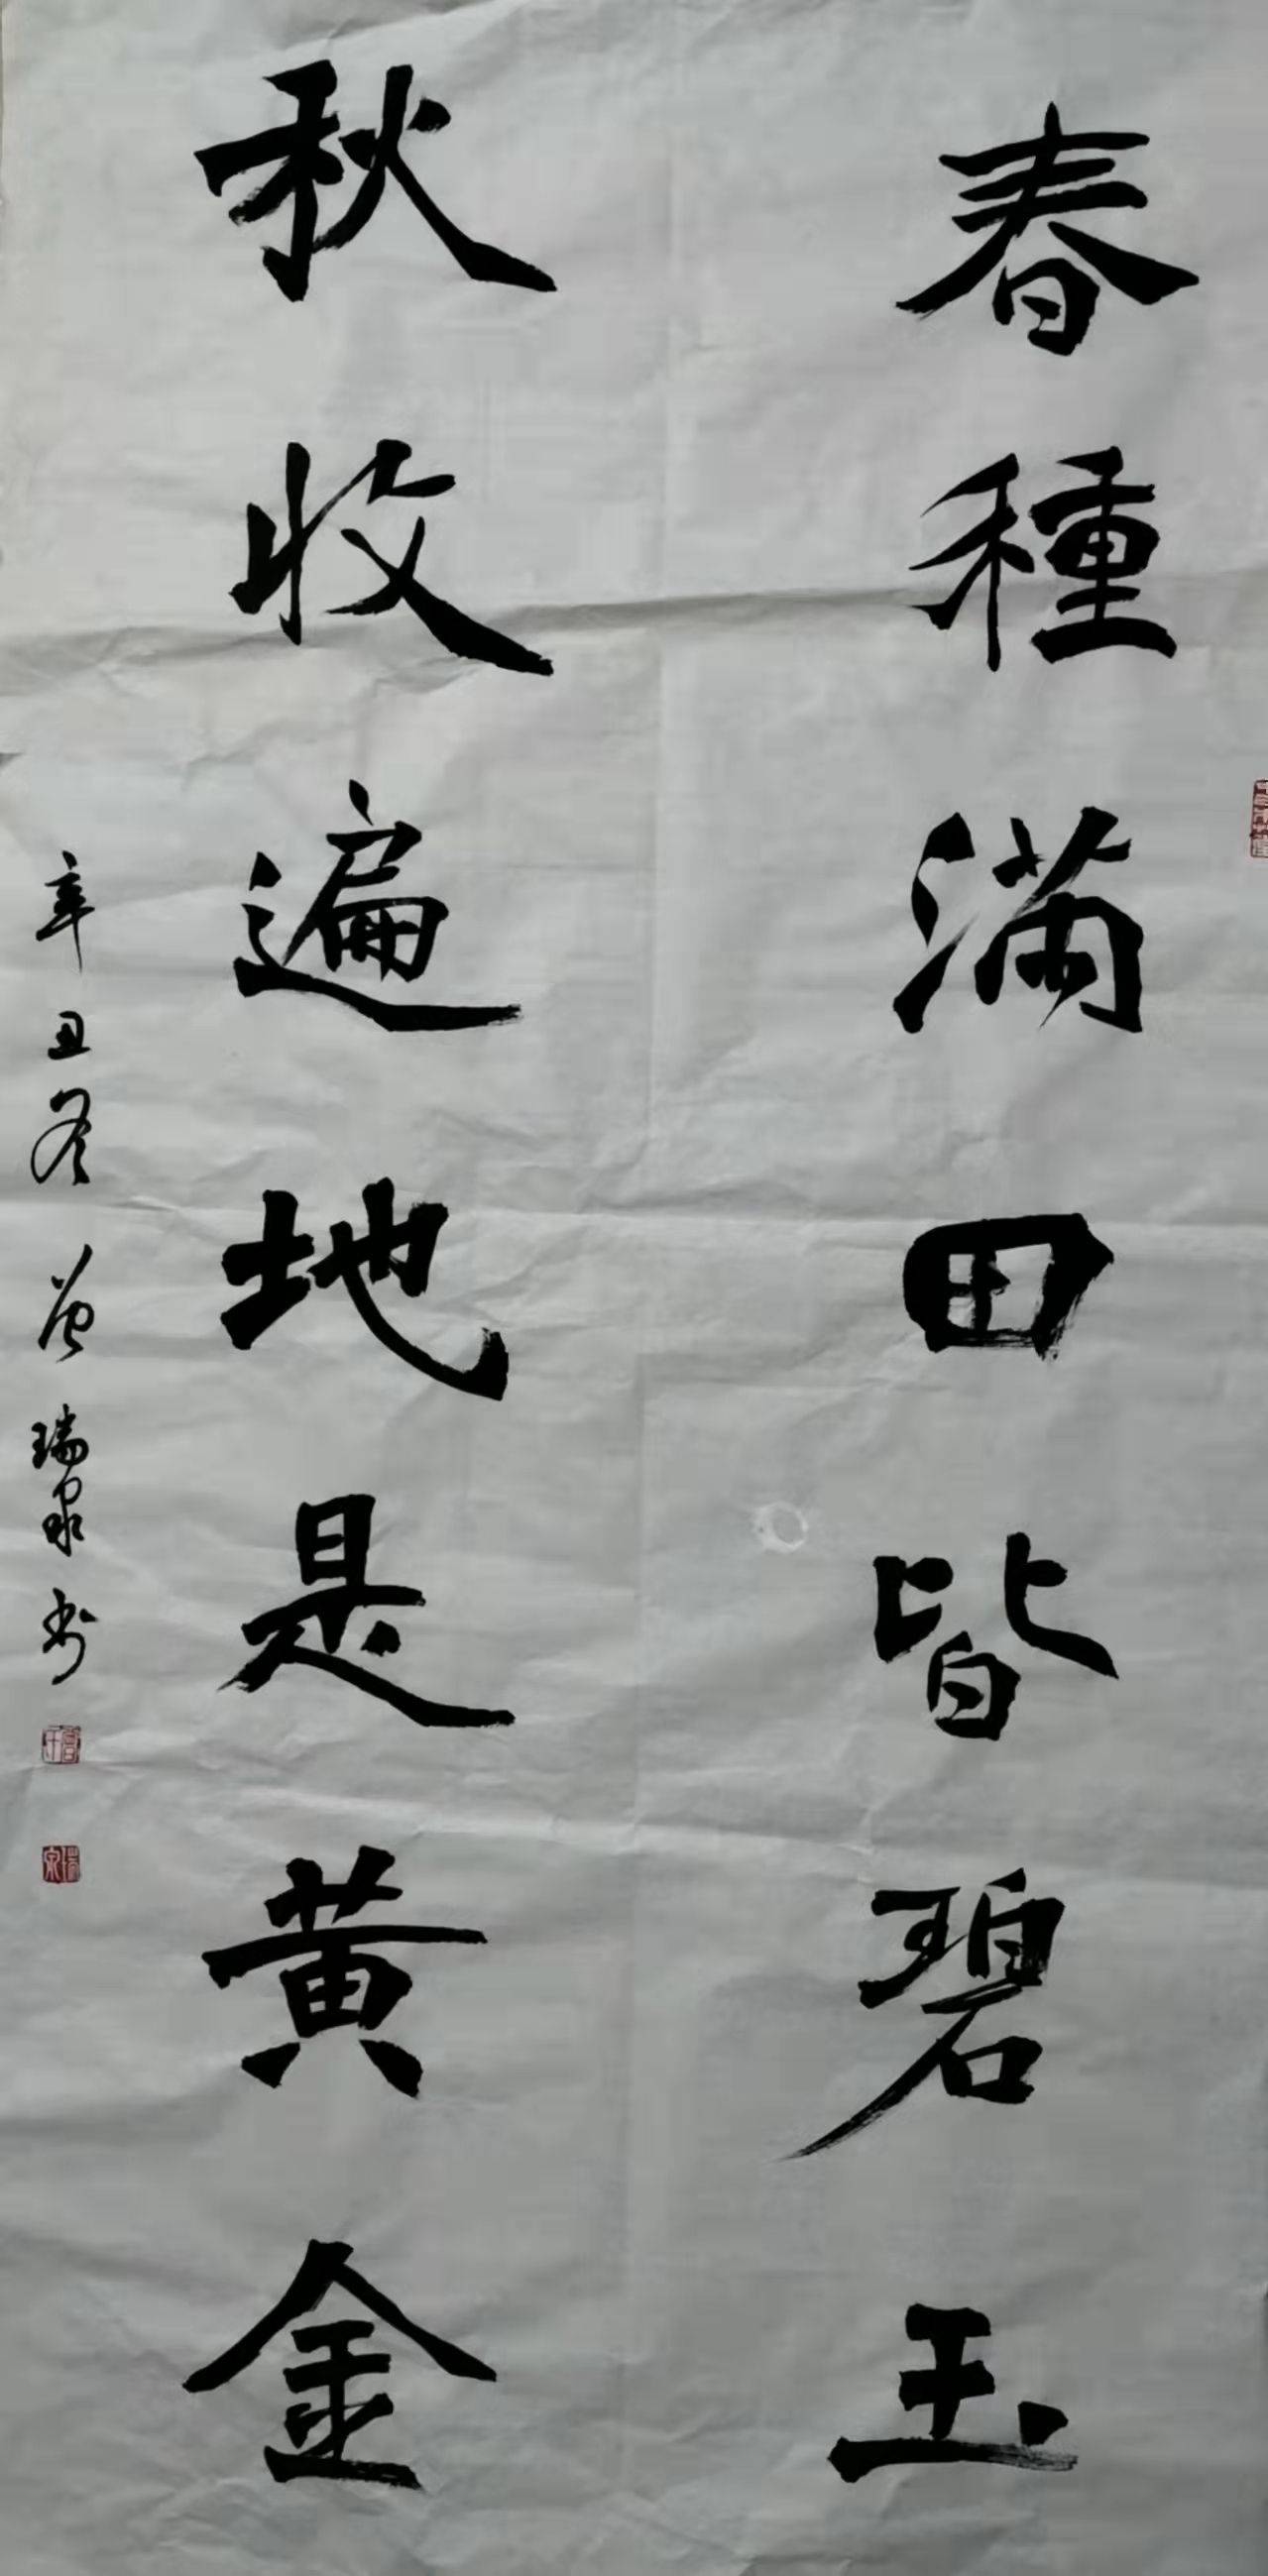 春種滿田皆碧玉
秋收遍地是黃金
辛丑冬 瑞泉书